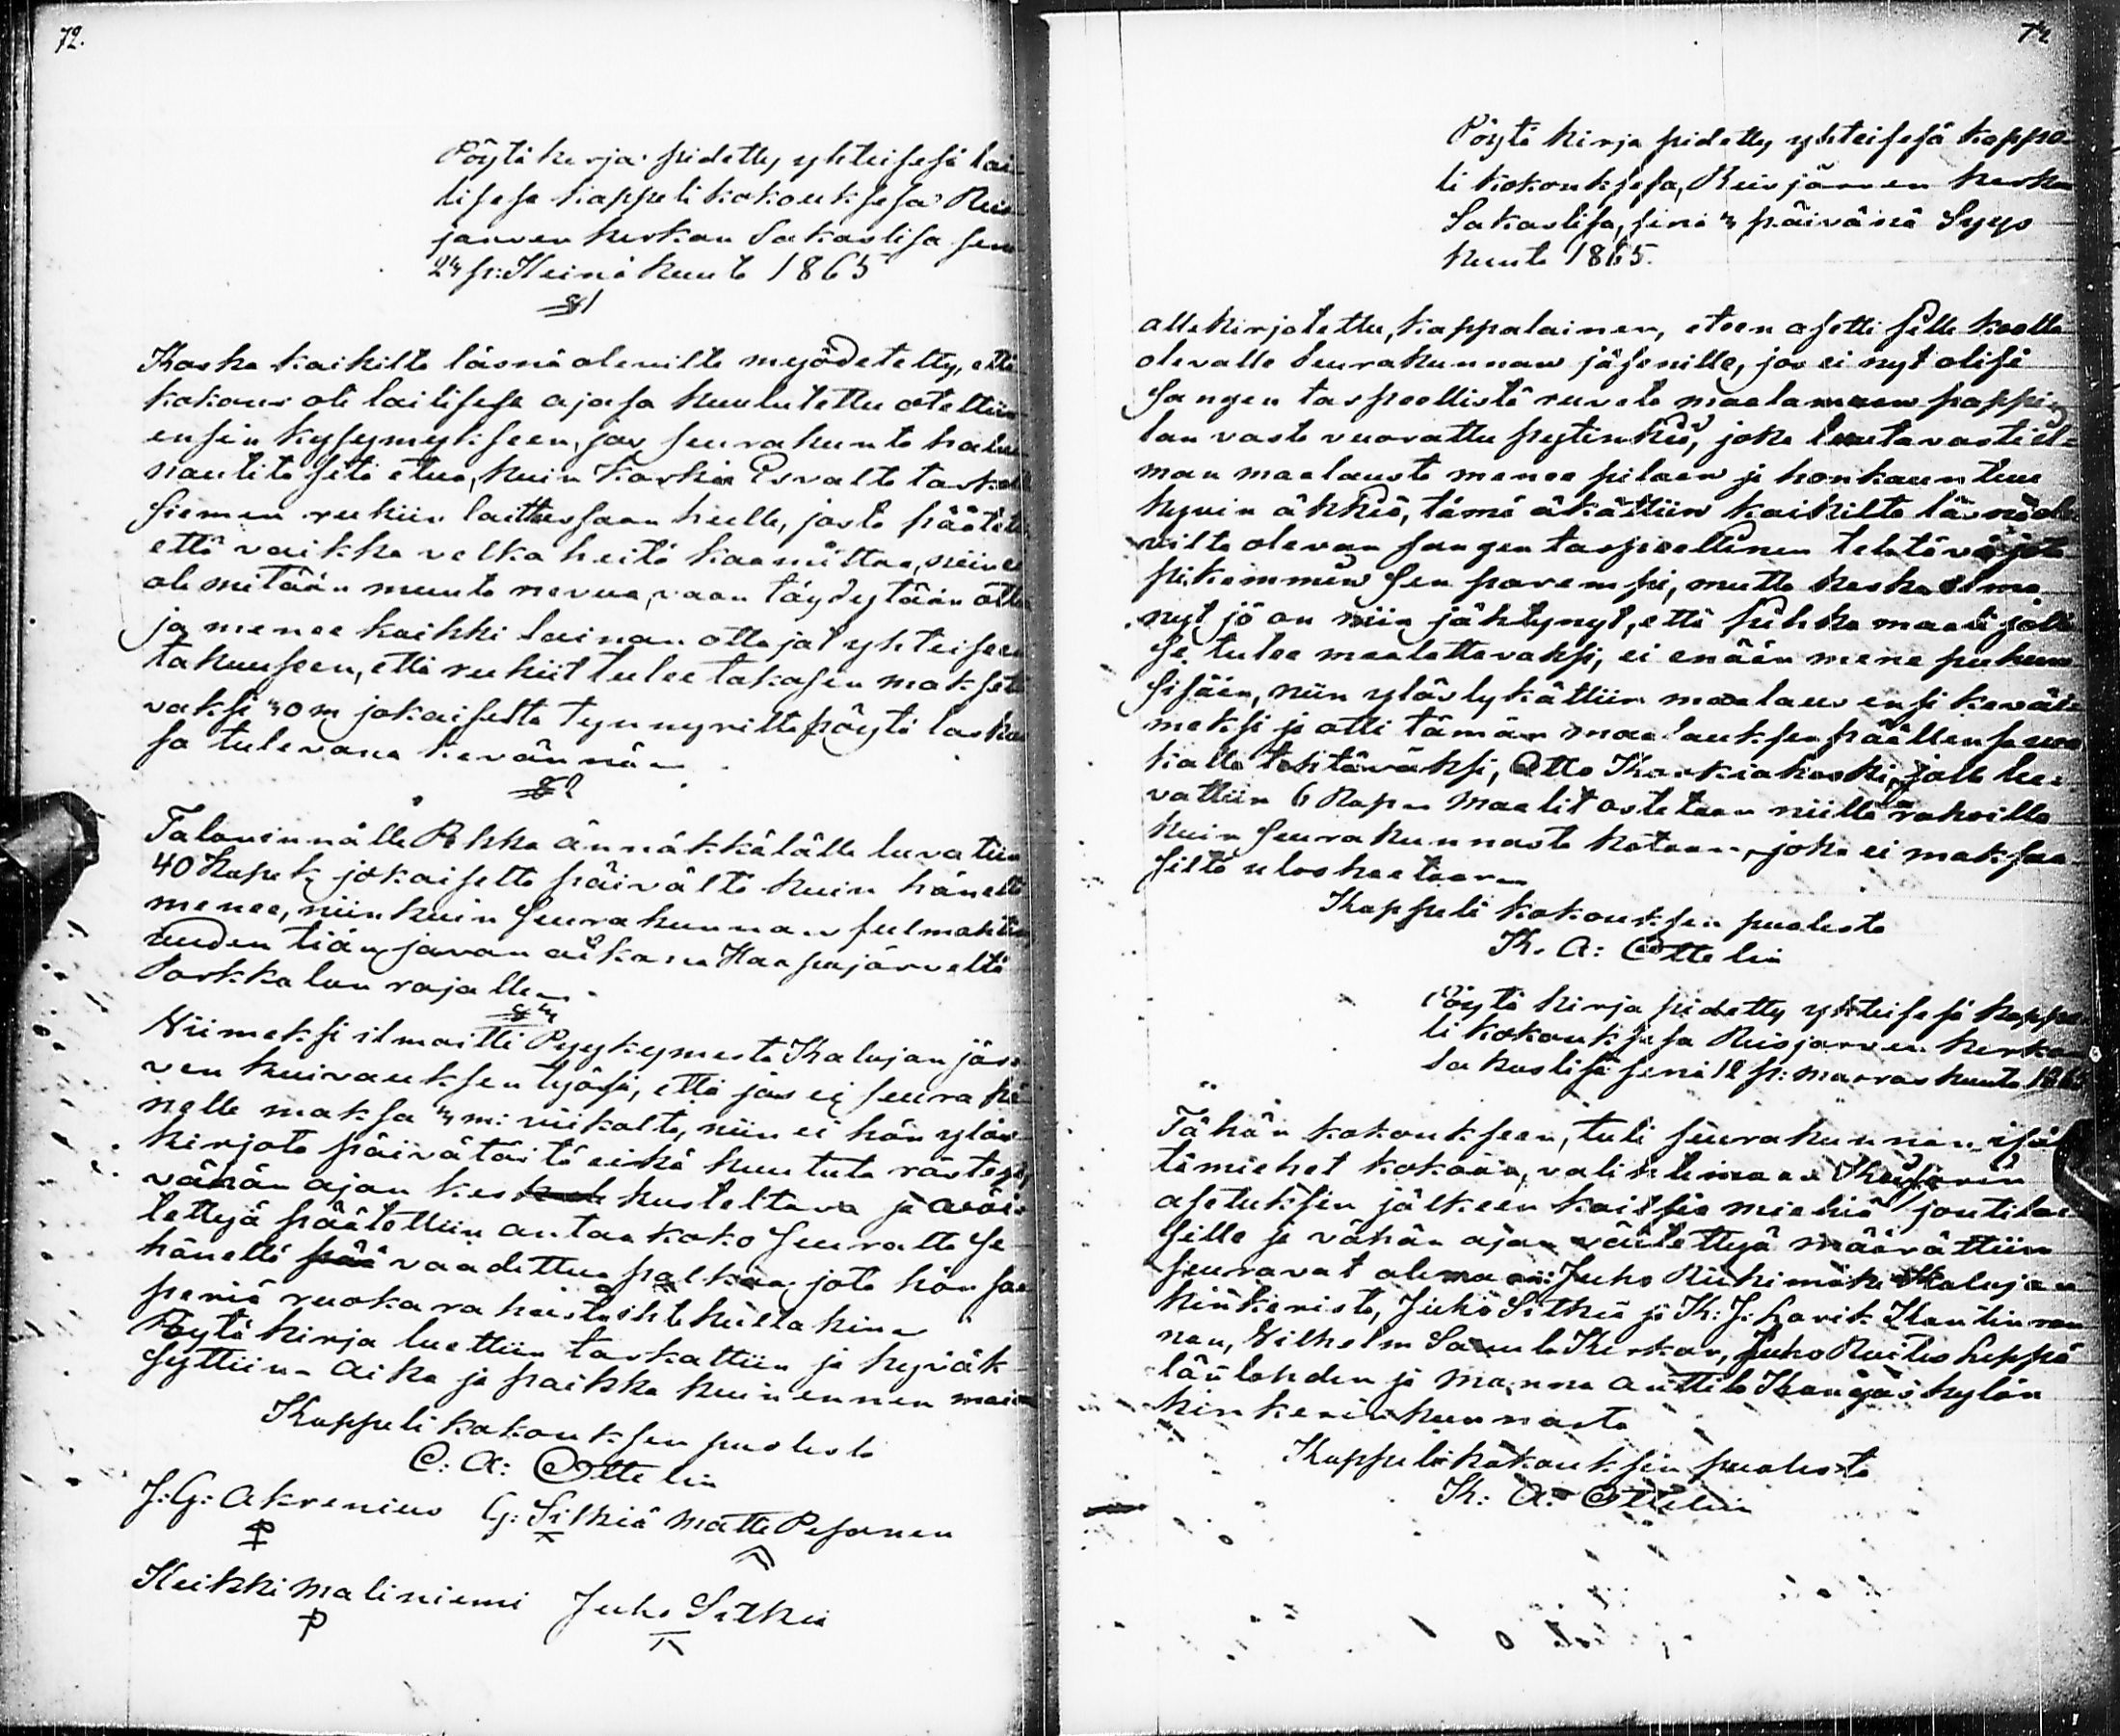 72.
Pöytä kirja pidetty yhteisesä lai
lisesa kappeli kokouksesa Reis
jarven kirkon Sakaslisa sen
24 p: Heinä kuuta 1865
§1
Koska kaikilta läsnä olevilta myödetetty, että
kokous oli lailisesa ajasa kuulutettu otettiin
ensin kysymykseen, jos seurakunta halu
nautita sitä etua, kuin
siemen rukiin laittussaan heille, josta päätet
että vaikka velka heitä kaamittaa, niin ei
ole mitään muuta nevua, vaan täydytään otta
ja menee kaikki lainan ottajat yhteiseen
takuuseen, että rukiit tulee takasen maksetta
vaksi 40 m jokaiselta tynnyriltä pöytä lasku
sa tulevana kevännä
§2
Talonisännälle Pekka Ännäkkälälle luvatiin
40 Kopek jokaiselta päivältä kuin häneltä
menee, niinkuin seurakunnan fulmahtin
uuden tiän javon aikana Haapajärveltä
Parkkalan rajalle
§4
Viimeksi ilmaitti Pyykymestä Kalajan jär
ven kuivauksen työsä, että jos ei seura hä
nelle maksa 4 m: viikolta, niin ei hän ylös
kirjota päivätöitä eikä kuututa rästejä,
vähän ajan kes kusteltava ja
lettyä päätettiin antaa koko seuralta se
häneltä vaadittua palkka, jota hän saa
periä ruoka rahoista
Pöytä kirja luettiin tarkattiin ja hyväk
syttiin. Aika ja paikka kuin ennen mai
Kappeli kokouksen puolesta
C: A: Ottelin
J: G: Akrenius G: Sitkiä Matti Pesonen
Heikki Maliniemi Juho Sitkiä
74
Pöytä kirja pidetty yhteisesä kappe
li kokouksesa, Reisjärven kirkon
Sakaslisa, sinä 4 päivänä Syys
kuuta 1865.
allekirjotettu, kappalainen, eteen asetti sille koolla
olevalle seurakunnan jäsenille, jos ei nyt olisi
sangen tarpeellistä ruveta maalamaan pappi
lan vasta vuorattu pytinkiä, joka luutavasti il-
man maalausta menee pilaan ja honkauntuu
hyvin äkkiä, tämä äkättiin kaikilta läsnäole
vilta olevan sangen tarpeellinen tehtävä, jota
pikemmin sen parempi, mutta koska ilma
nyt jo on niin jähtynyt, että maali jolla
se tulee maalattavaksi, ei enään mene puhun
sisään, niin ylöslykättiin maalaus ensi kevä
meksi ja otti tämän maalauksen päällensä
kalla tehtäväksi, Otto Karkiakoski, jolle lu-
vattiin 6 Rup. Maalit ostetaan niillä rahoilla
kuin seurakunnasta kotaan, joka ei maksaa
siltä uloshaetaan
Kappeli kokouksen puolesta
K. A: Ottelin
Pöytä kirja pidetty yhteisesä kappe
li kokouksesa Reisjarven kirkon
Sakaslisa sinä 12 p: marraskuuta 1865
Tähän kokoukseen, tuli seurakunnan isän
tämiehet kokoon, valihtemaan Keisarin
asetuksen jälkeen kaitsia miehiä joutilai
sille ja vähän ajan väitettyä määrättiin
seuravat olemaan: Juho Riihimäki Kalajan
kinkeristä, Juho Sitkiä ja K: J: Kantin ran
nan, Vilhelm Savula Kirkon, Juho Ruotus Leppä
länlahden ja Manna Anttila Kangaskylän
kinkerinkunnasta
Kappeli kokouksen puolesta
K: A: Ottelin